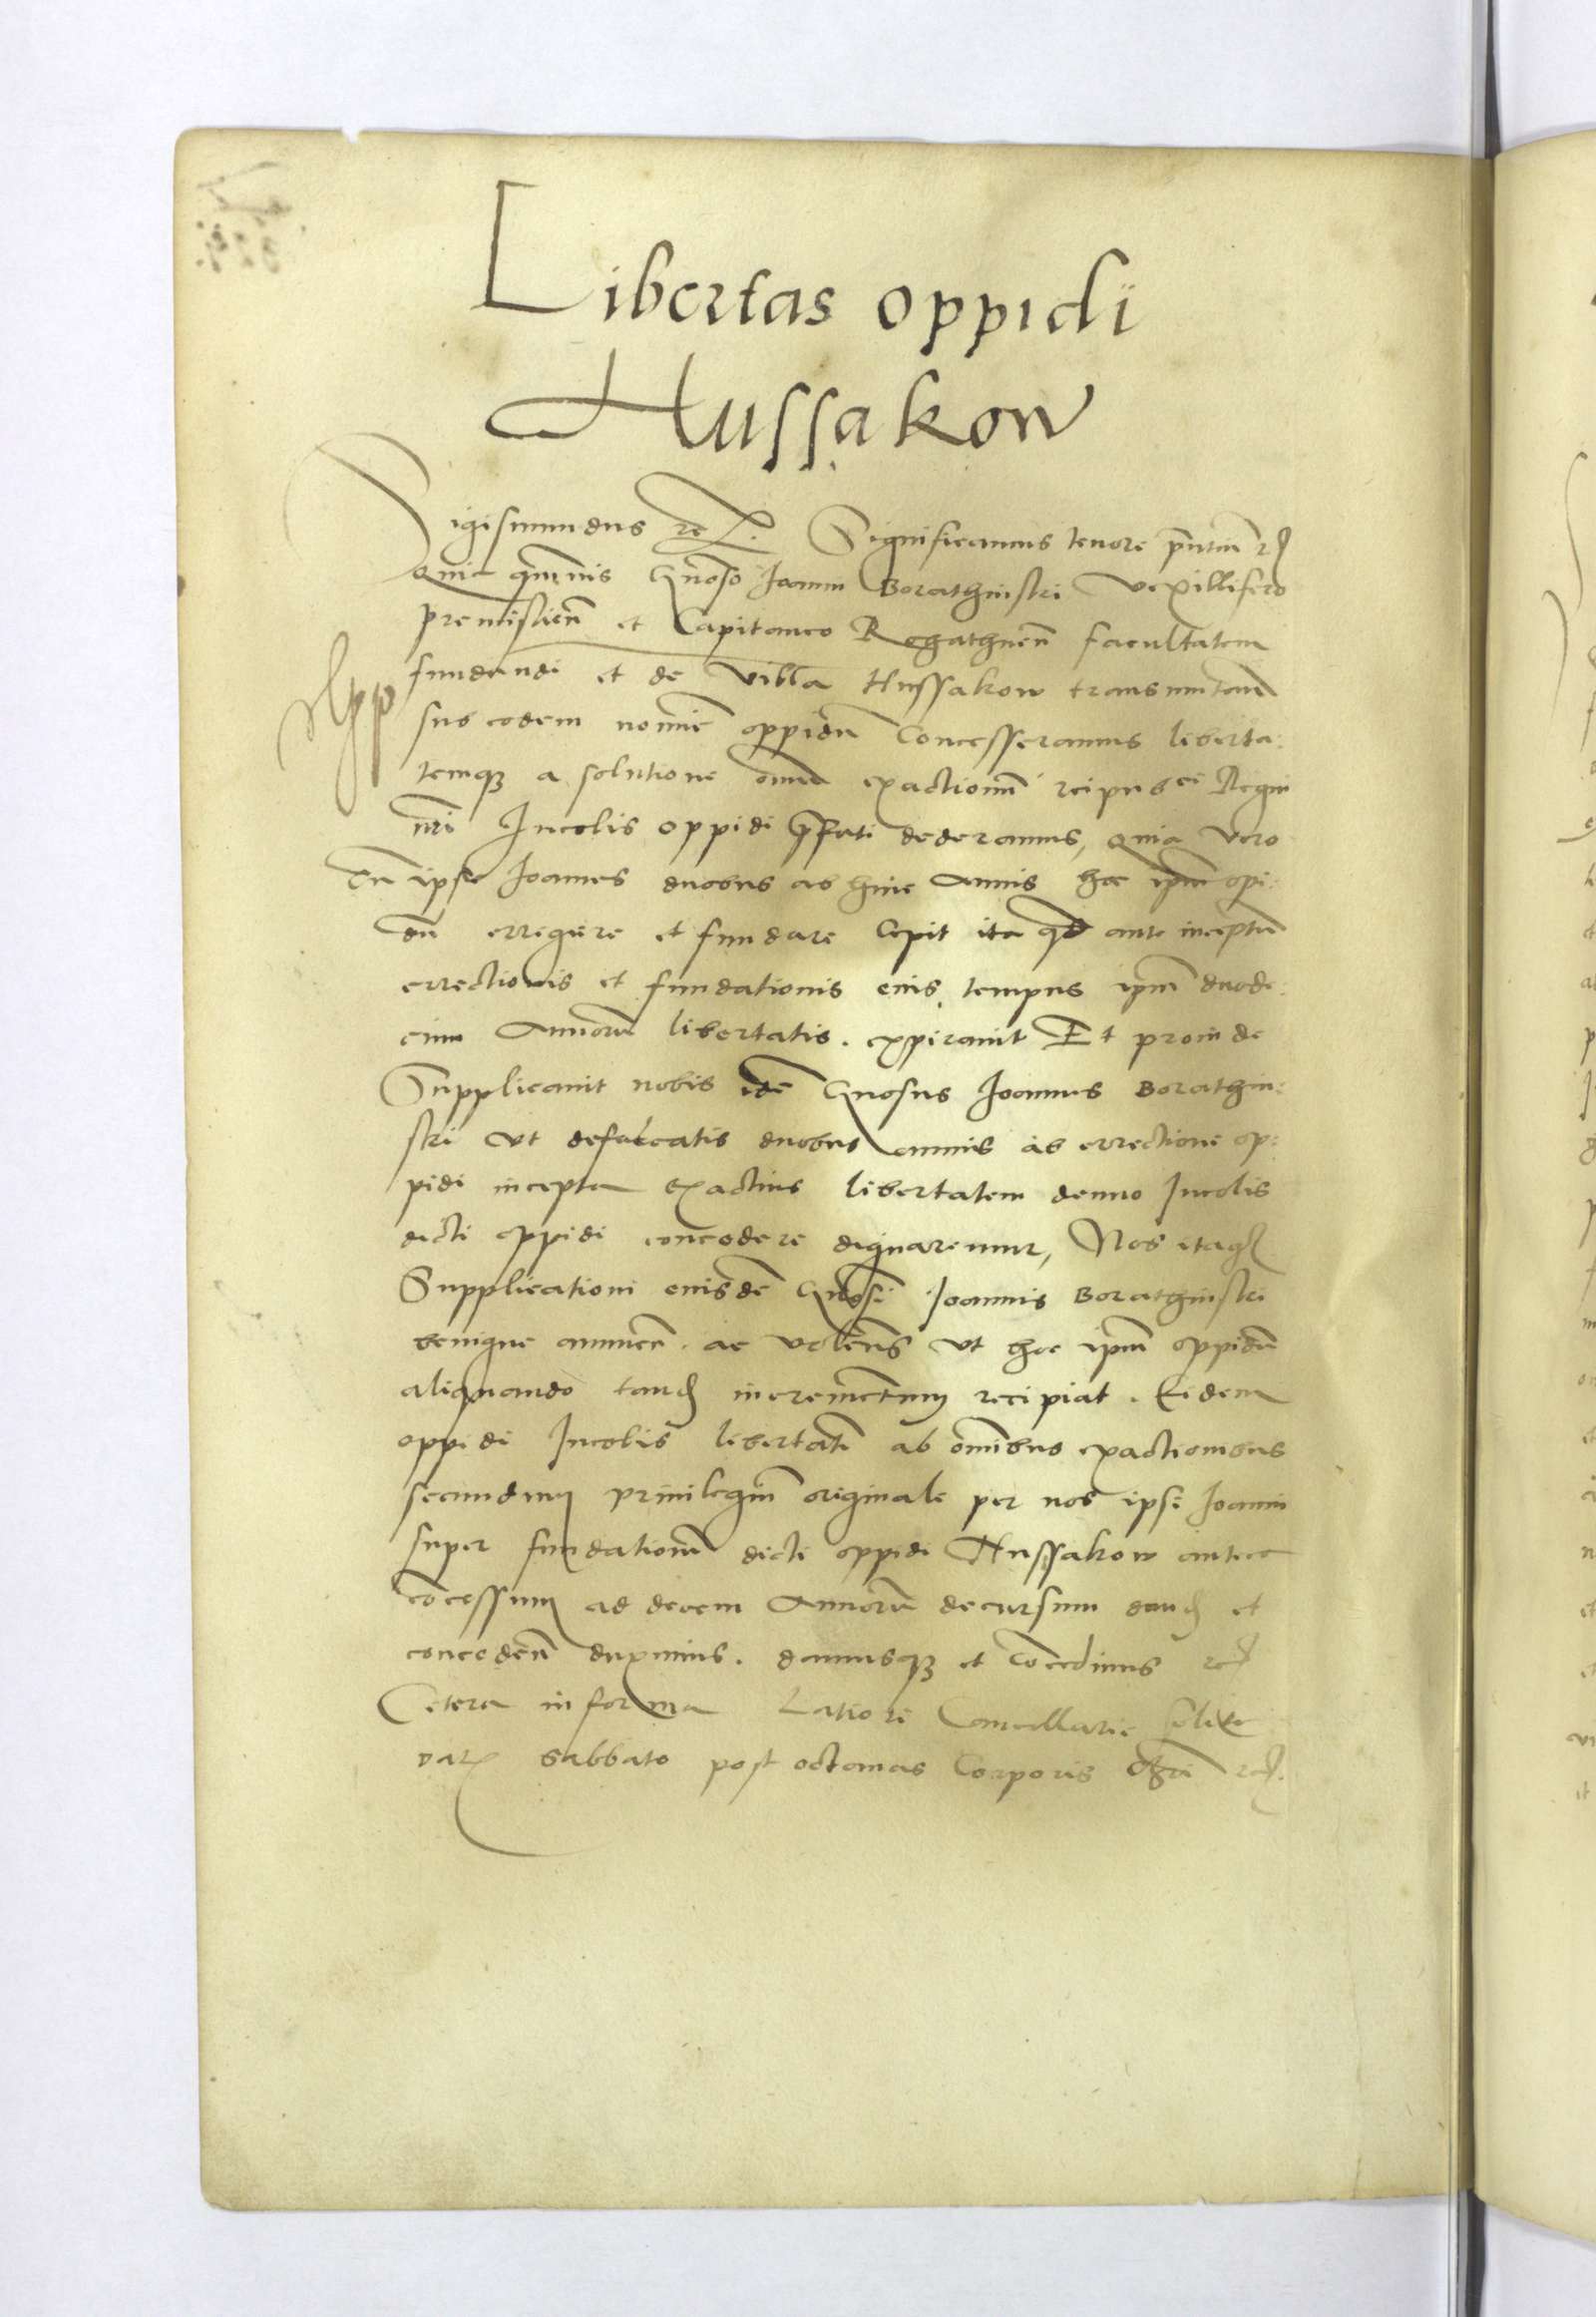 Libertas oppidi
Hussakow
Sigismundus etc. Significamus tenore p̄ntiū etc
Quia qmuis Gnoso Joanni Borathinski Vexillifero
premislieñ et Capitaneo Rogathineñ facultatem
fundandi et de villa Hussakow transmutand
sub eodem nomīe oppidū Concesseramus liberta:
temq3 a solutione omniū exactionū reipubcę Regni
nri Incolis oppidi pfati dederamus, quia vero
dū ipse Joannes duobus ab hinc Annis hoc ipm opi:
dū erregere et fundare cepit ita qd ante inceptū
errectionis et fundationis eius tempus ipm duode:
cim Annorū libertatis. expirauit Et proinde
Supplicauit nobis idē Gnosus Joannes Borathin:
ski vt defalcatis duobus annis ab errectione op:
pidi incepta exactius libertatem denuo Incolis
dicti oppidi concedere dignaremur, Nos itaq3
Supplicationi eiusdē Gnosi Joannis Borathinski
benigne annueñ. ac volentes vt hoc ipm oppidū
aliquando tand incrementum recipiat. Eidem
oppidi Incolis libertatē ab omībus exactionibus
secundum priuilegiū originale per nos ipsi Joanni
super fundationē dicti oppidi Hussakow antea
cōcessum ad decem Annorū decursum dand et
concedeñ duximus. damusq3 et Cōcedimus etc
Cetera in forma Latiore Cancellarie
Dat Sabbato post octauas Corporis Chri etc.